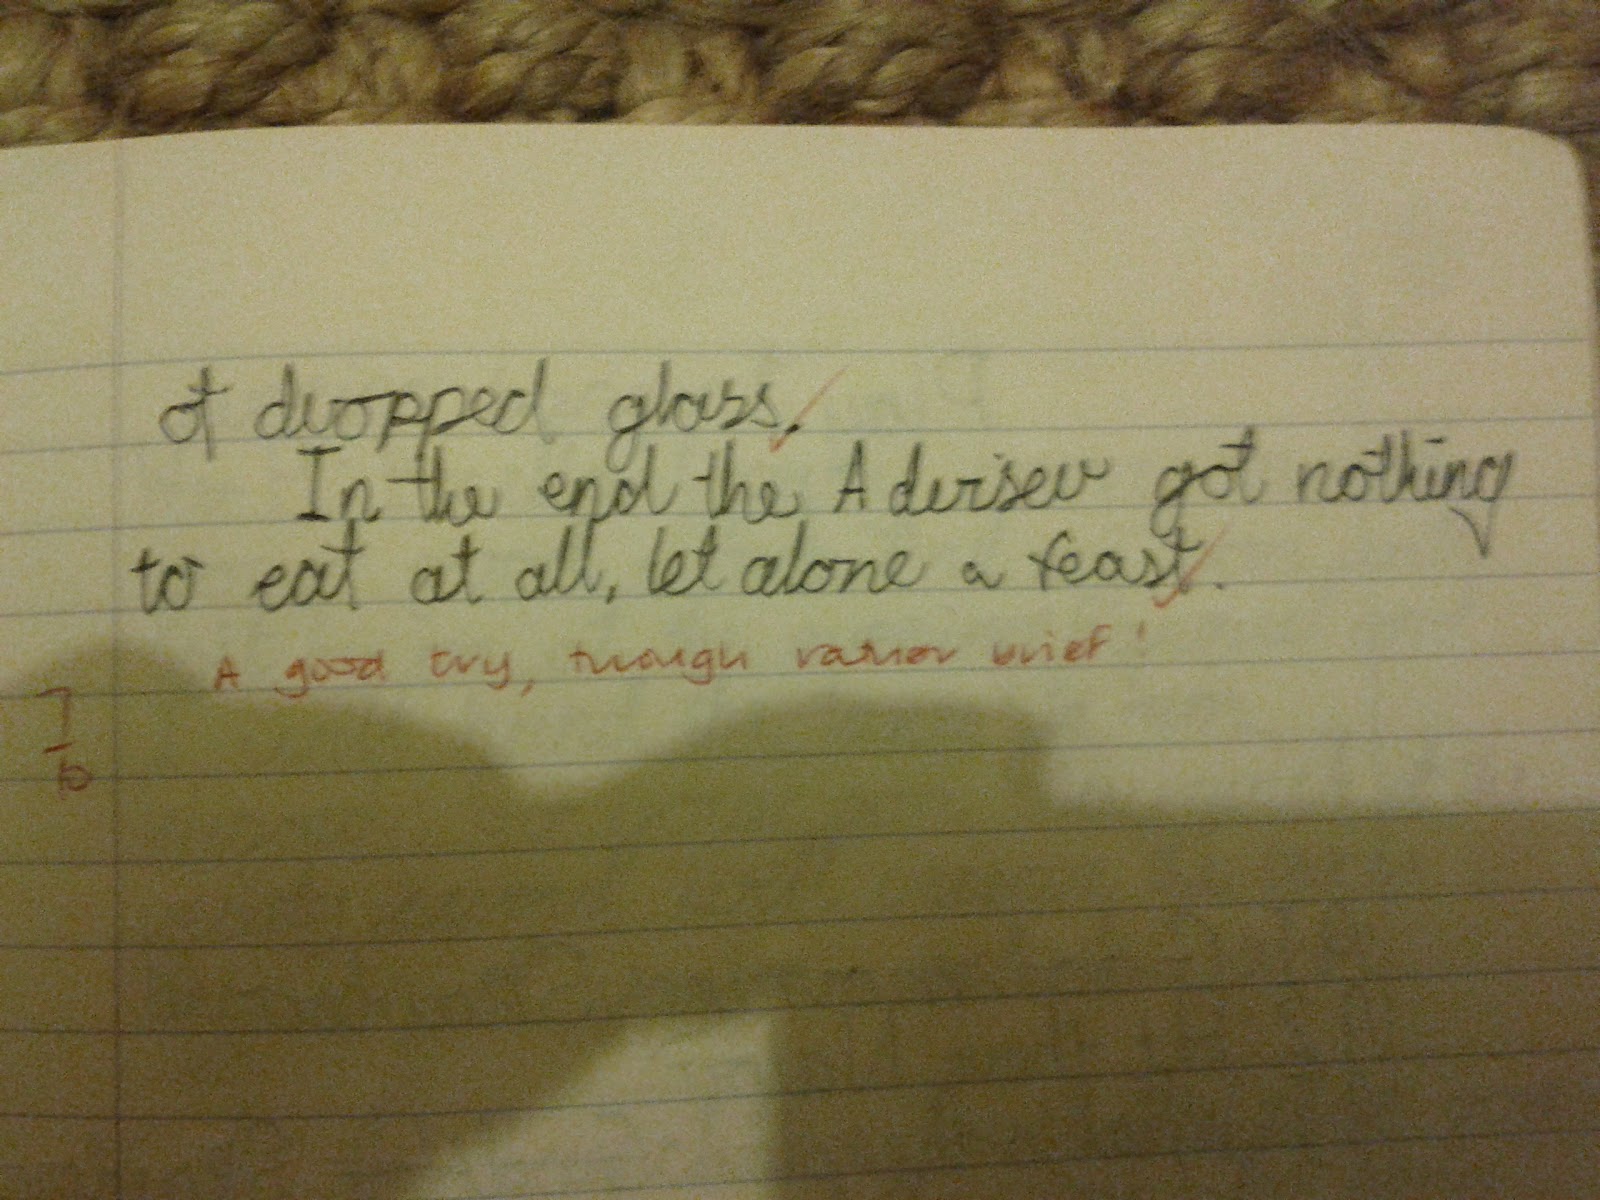 of dropped glass.
In the end the Adviser got nothing
to eat at all, let alone a feast.
A good try, though rather brief!
7
10